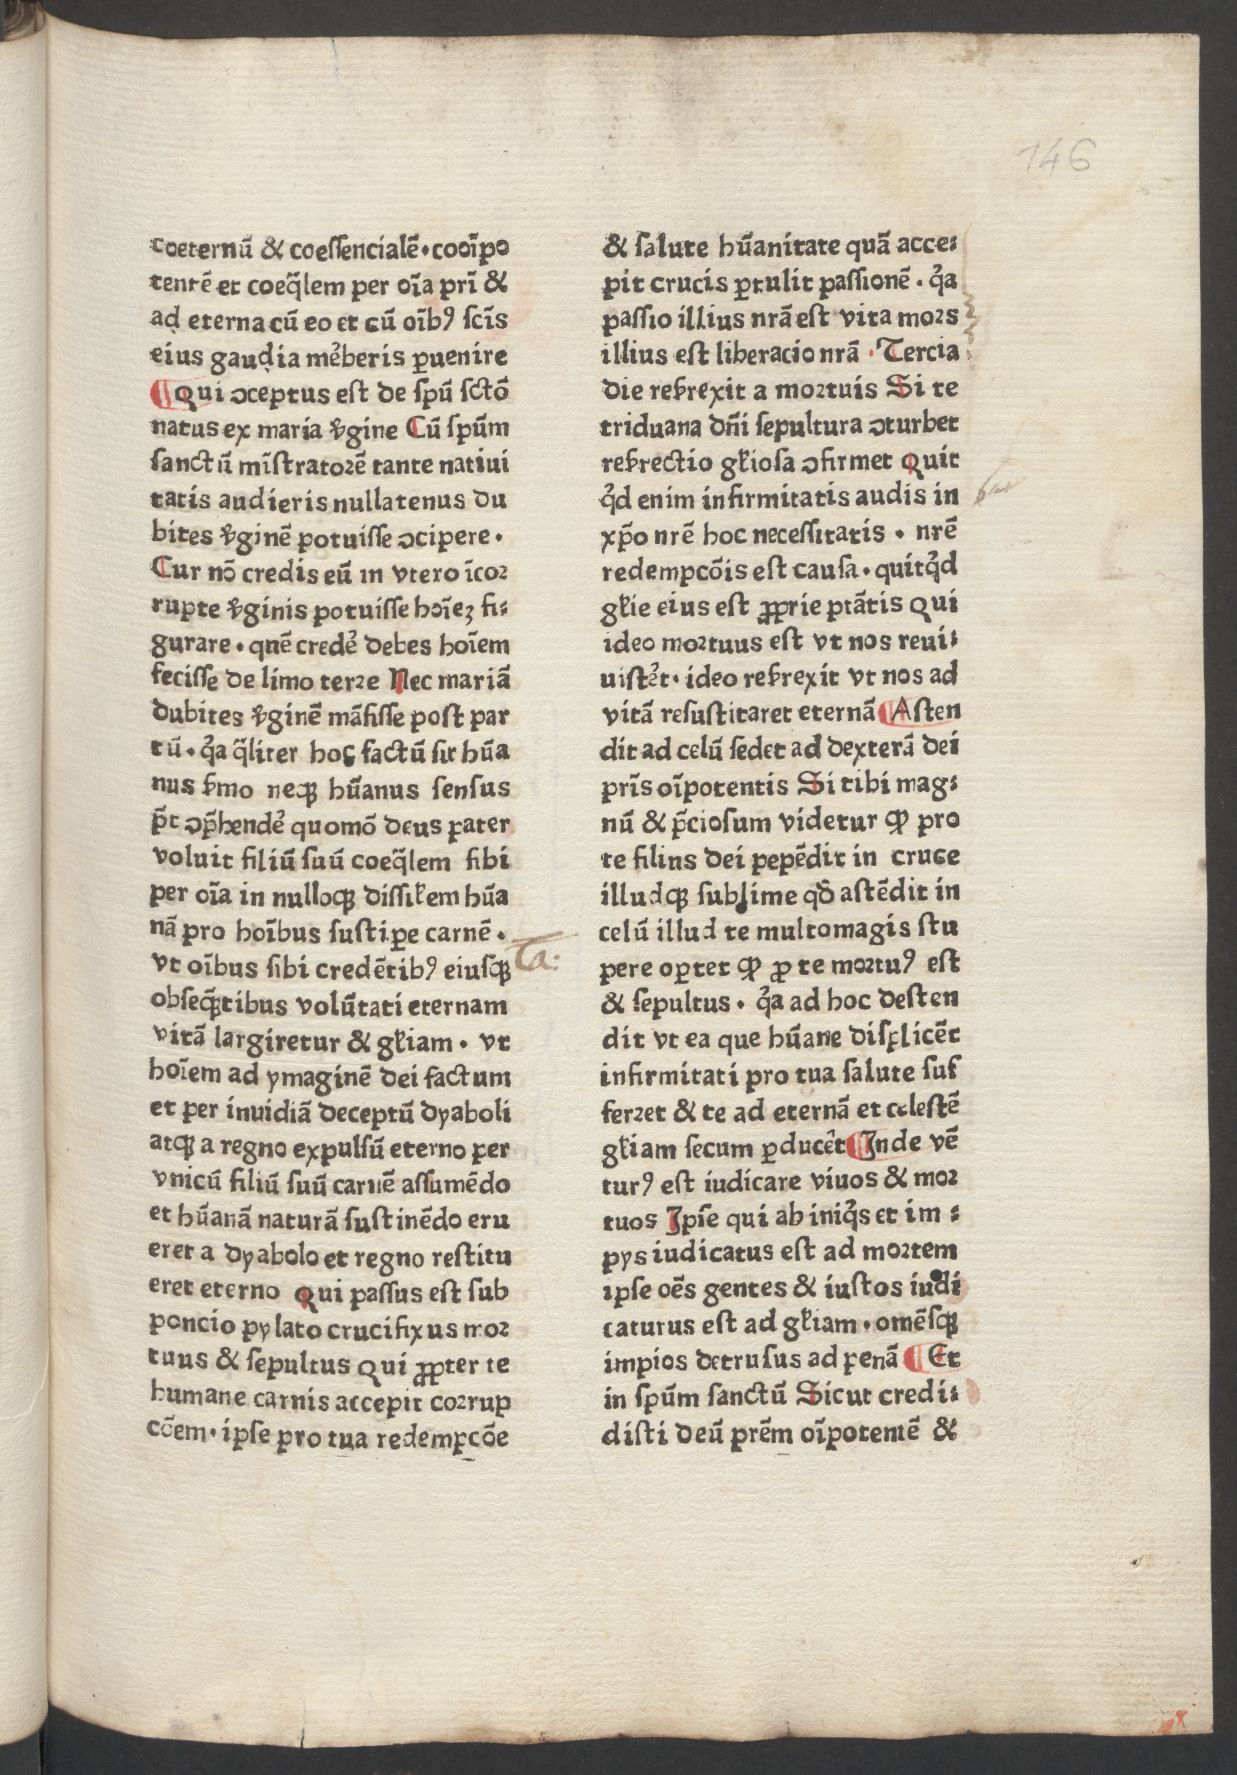 146
coeternū & coessencialē · cooīpo
tentē et coeq̄lem per oīa pr̄i &
ad eterna cū eo et cū oībꝰ sc̄is
eius gaudia mēberis ꝑuenire
¶ Qui ↄceptus est de spū sctō
natus ex maria v̄gine Cū spūm
sanctū mīstratorē tante natiui
tatis audieris nullatenus du
bites v̄ginē potuisse ↄcipere ·
Cur nō credis eū in vtero īcor
rupte v̄ginis potuisse hoīeꝫ fi⸗
gurare · quē credẽ debes hoīem
fecisse de limo terre Nec mariā
dubites v̄ginē māsisse post par
tū · q̄a q̄liter hoc factū sit hūa
nus s̄mo neqꝫ hūanus sensus
p̄t ↄp̄hendẽ quomō deus pater
voluit filiū suū coeq̄lem sibi
per oīa in nulloqꝫ dissiłem hūa
nā pro hoībus suscipe carnē ·
vt oībus sibi credētibꝰ eiusqꝫ
ta:
obseq̄ntibus volūtati eternam
vitā largiretur & głiam · vt
hoīem ad ymaginē dei factum
et per inuidiā deceptū dyaboli
atqꝫ a regno expulsū eterno per
vnicū filiū suū carnē assumēdo
et hūanā naturā sustinēdo eru
eret a dyabolo et regno restitu
eret eterno Qui passus est sub
poncio pylato crucifixus mor
tuus & sepultus Qui ꝓpter te
humane carnis accepit corrup
cōem · ipse pro tua redempcōe
& salute hūanitate quā acce⸗
pit crucis ꝑtulit passionē · q̄a
passio illius nrā est vita mors
illius est liberacio nrā · Tercia
die res̄rexit a mortuis Si te
triduana dn̄i sepultura ↄturbet
res̄rectio głiosa ↄfirmet Quit
q̄d enim infirmitatis audis in
xp̄o nrē hoc necessitatis · nrē
redempcōis est causa · quitq̄d
głie eius est ꝓprie ptātis Qui
ideo mortuus est vt nos reui⸗
uiscẽt · ideo res̄rexit vt nos ad
vitā resuscitaret eternā ¶ Ascen
dit ad celū sedet ad dexterā dei
pr̄is oīpotentis Si tibi mag⸗
nū & p̄ciosum videtur ꝙ pro
te filius dei pepēdit in cruce
illudqꝫ sublime qđ ascēdit in
celū illud te multomagis stu
pere oꝑtet ꝙ ꝓ te mortuꝰ est
& sepultus · q̄a ad hoc descen
dit vt ea que hūane displicēt
infirmitati pro tua salute suf
ferret & te ad eternā et celestē
głiam secum ꝑducẽt ¶ Inde vē
turꝰ est iudicare viuos & mor
tuos Ipse qui ab iniq̄s et im⸗
pys iudicatus est ad mortem
ipse oēs gentes & iustos iudi
caturus est ad głiam · omēsqꝫ
impios detrusus ad penā ¶ Et
in spūm sanctū Sicut credi⸗
disti deū prēm oīpotentē &